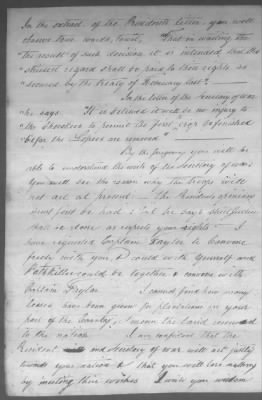 In the extract of the Presidents letter, you will
observe these words, towit, "That in waiting the
"the result of such decision it is intended that the
"strictest regard shall be paid to their rights as
"secured by the Treaty of January last"—
In the letter of the Secretary of war
he says. "It is believed it will be no injury to
"the Cherokees to permit the first crop to be finished
"before the Lessees are removed"
By the foregoing you will be
able to understand the wish of the Secretary of war.
You will see the reason why the troops will
not act at present — The Presidents opinions
must first be had & that he says strict justice
shall be done as regards your rights — I
have requested Captain Taylor to Converse
freely with you, & could with yourself and
Pathkiller could be together & converse with
Captain Taylor I cannot find how many
leases have been given for plantations in your
part of the Country, I mean the land reserved
to the nation I am confident that the
President and Secretary of war will act justly
towards your nation & that you will lose nothing
by meeting their wishes I wish your wisdom